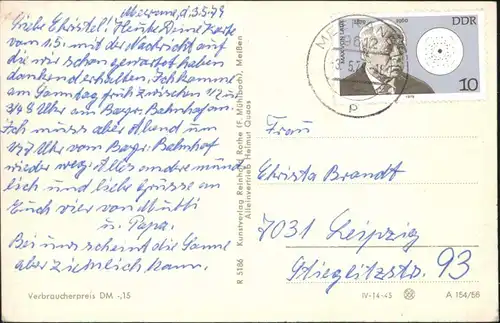 Meerane, d. 3.5.79
Liebe Christel! Heute Deine Karte
vom 1.5. mit der Nachricht auf
die wir schon gewartet haben
dankend erhalten. Ich komme
am Sonntag früh zwischen 1/2 u.
3/4 8 Uhr am Bayr. Bahnhof an.
Ich muss aber Abend um
1/2 7 Uhr vom Bayr. Bahnhof
wieder weg. Alles andere münd
lich und liebe Grüsse an
Euch vier von Mutti
u. Papa.
Bei uns scheint die Sonne
aber ziemlich kann.
Verbraucherpreis DM -,15
R 5186 Kunstverlag Reinhard Rothe (F. Mühlbach), Meißen
Alleinvertrieb Helmut Quaas
1879 1960
DDR
MAX VON LAUE
10
1979
Frau
Christa Brandt
7031 Leipzig
Stieglitzstr. 93
IV-14-45
A 154/56